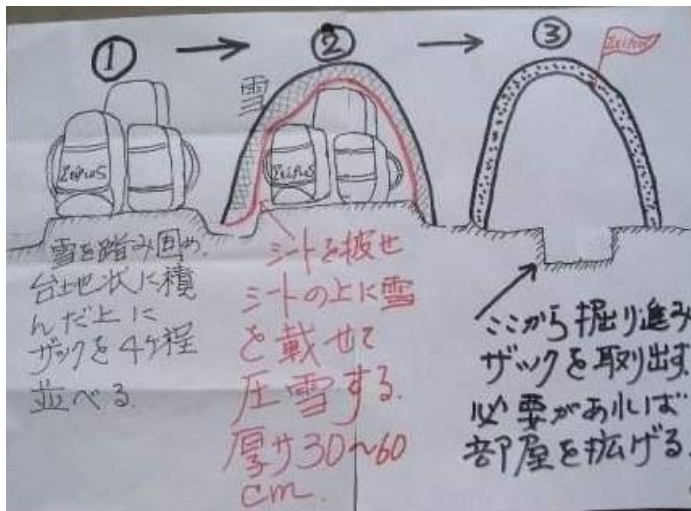 ① → ② → ③
Zeirus
雪
Zeirus
Zeirus
雪を踏み固め、
台地状に積
んだ上に
ザックを4ケ程
並べる
シートを披せ
シートの上に雪
を載せて
圧雪する.
厚サ30〜60
cm.
ここから掘り進み
ザックを取り出す.
必要があれば
部屋を拡げる.